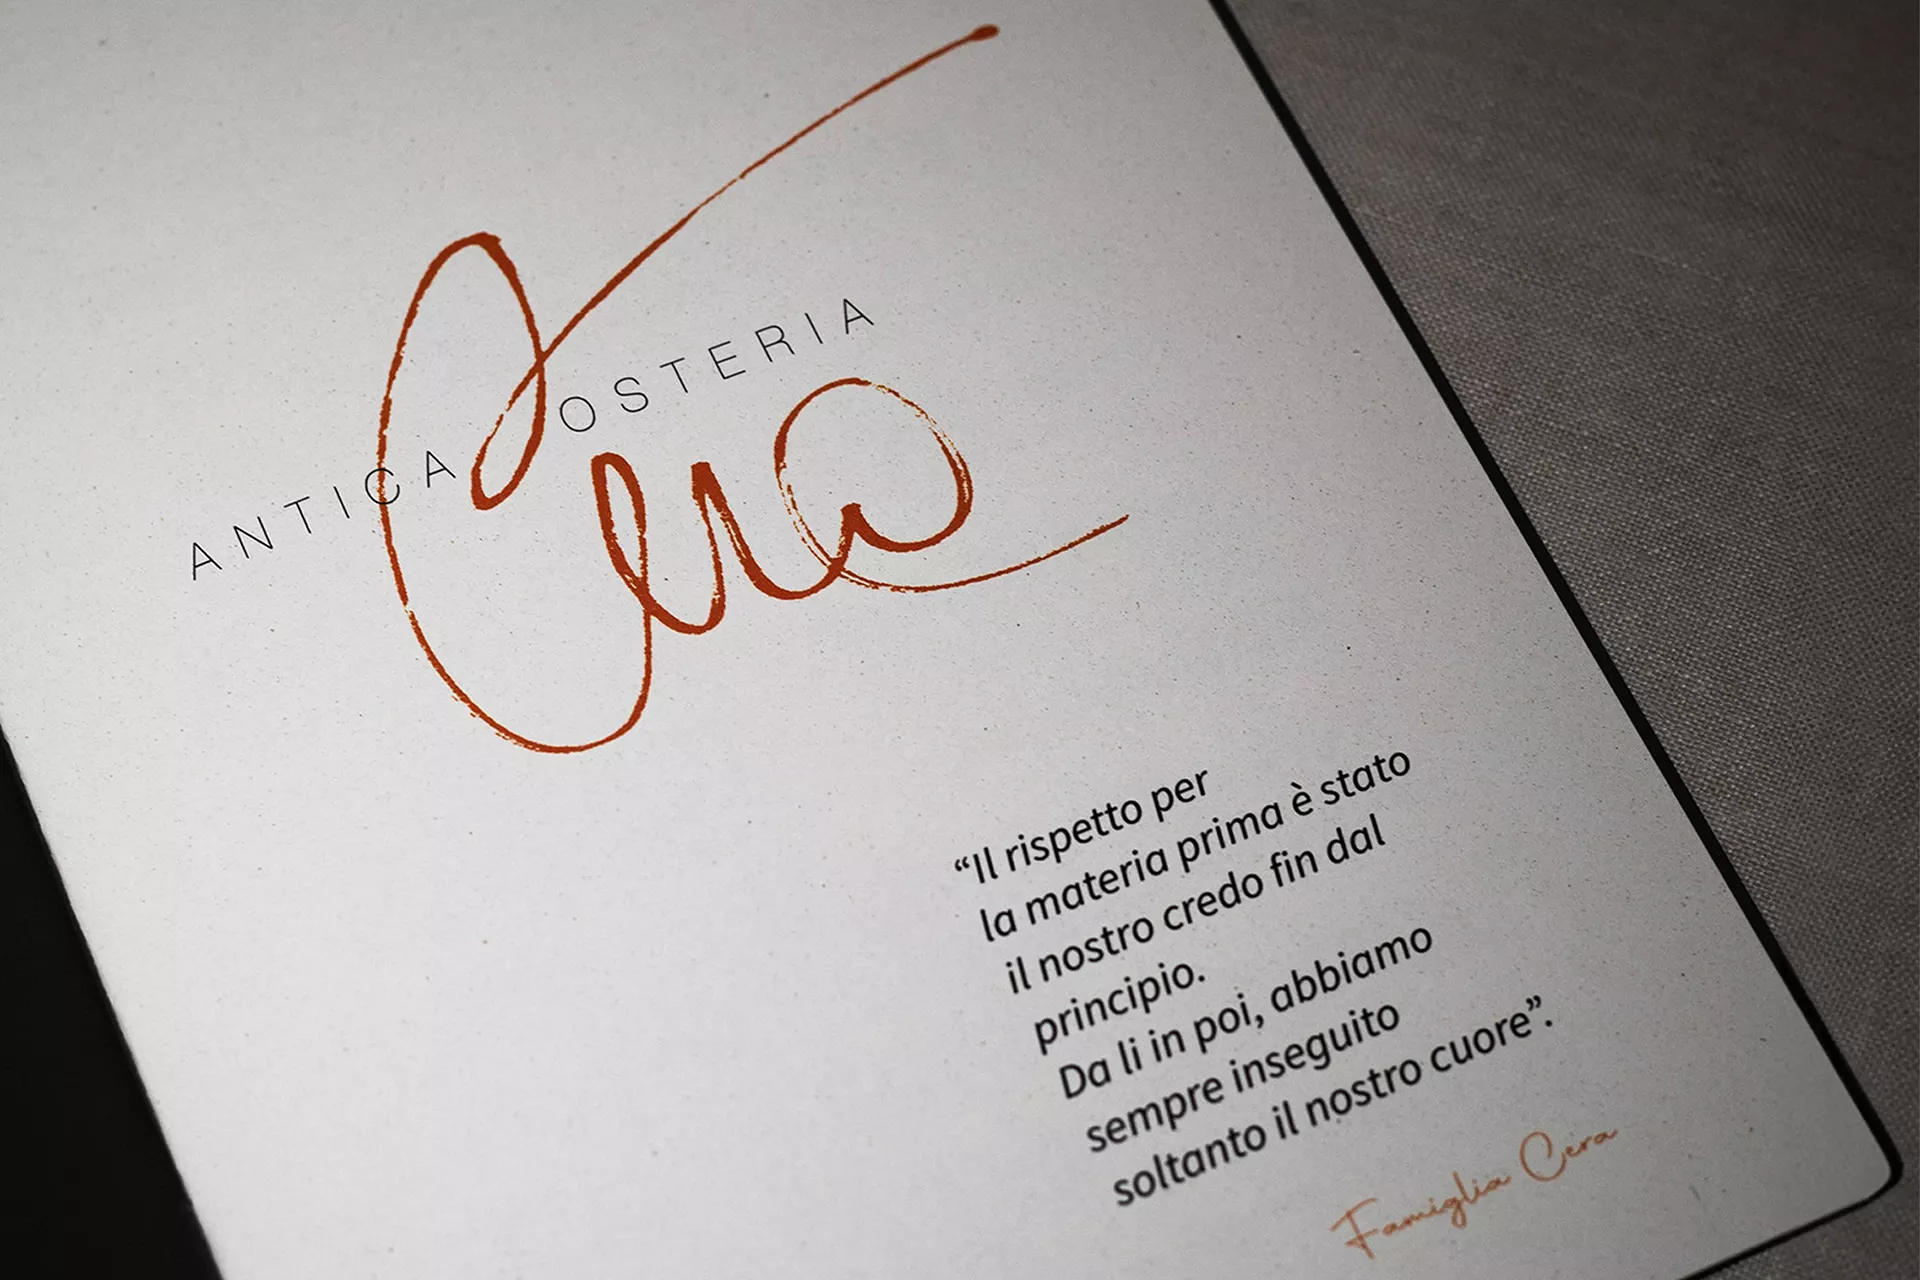 ANTICA OSTERIA
Cera
“Il rispetto per
la materia prima è stato
il nostro credo fin dal
principio.
Da li in poi, abbiamo
sempre inseguito
soltanto il nostro cuore”.
Famiglia Cera